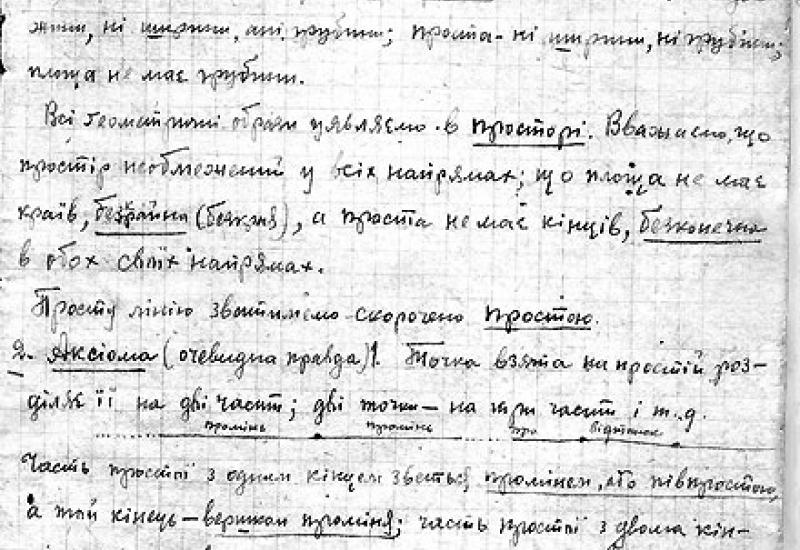 жини, ні ширини, ані грубини; проста - ні ширини, ні грубини;
площа не має грубини.
Всі геометричні образи уявляємо в просторі. Вважаємо, що
простір необмежений у всіх напрямах; що площа не має
країв, безкрайна (безкрая), а проста не має кінців, безконечна
в обох своїх напрямах.
Просту лінію зватимемо скорочено простою.
2. Аксіома (очевидна правда) 1. Точка взята на простій роз-
діляє її на дві часті; дві точки — на три часті і т.д.
промінь промінь про відтинок
Часть простої з одним кінцем зветься променем, або півпростою,
а той кінець — вершком проміня; часть простої з двома кін-